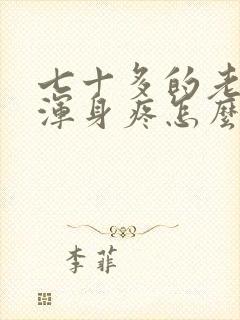 七十多的老
渾身疼怎麼
李菲